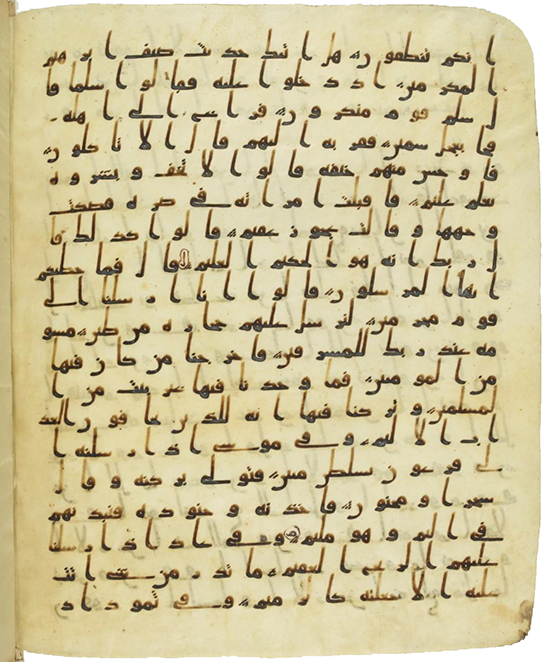 انكم تنطقون هل اتىك حديث ضيف ابرهيم
المكرمين اذ دخلوا عليه فقالوا سلما قا
ل سلم قوم منكرون فراغ الى اهله
فجا بعجل سمين فقربه اليهم قال الا تاكلون
فاوجس منهم خيفه قالوا لا تخف وبشروه
بغلم عليم فاقبلت امراته في صره فصكت
وجهها وقالت عجوز عقيم قالوا كذلك قا
ل ربك انه هو الحكيم العليم قال فما خطبكم
ايها المرسلون قالوا انا ارسلنا الى
قوم مجرمين لنرسل عليهم حجاره من طين مسو
مه عند ربك للمسرفين فاخرجنا من كان فيها
من المومنين فما وجدنا فيها غير بيت من ا
لمسلمين وتركنا فيها ايه للذين يخافون العذ
اب الاليم وفي موسى اذ ارسلنه ا
لى فرعون بسلطن مبين فتولى بركنه وقال
سحر او مجنون فاخذنه وجنوده فنبذنهم
في اليم وهو مليم وفي عاد اذ ارسلنا
عليهم الريح العقيم ما تذر من شي اتت
عليه الا جعلته كالرميم وفي ثمود اذ